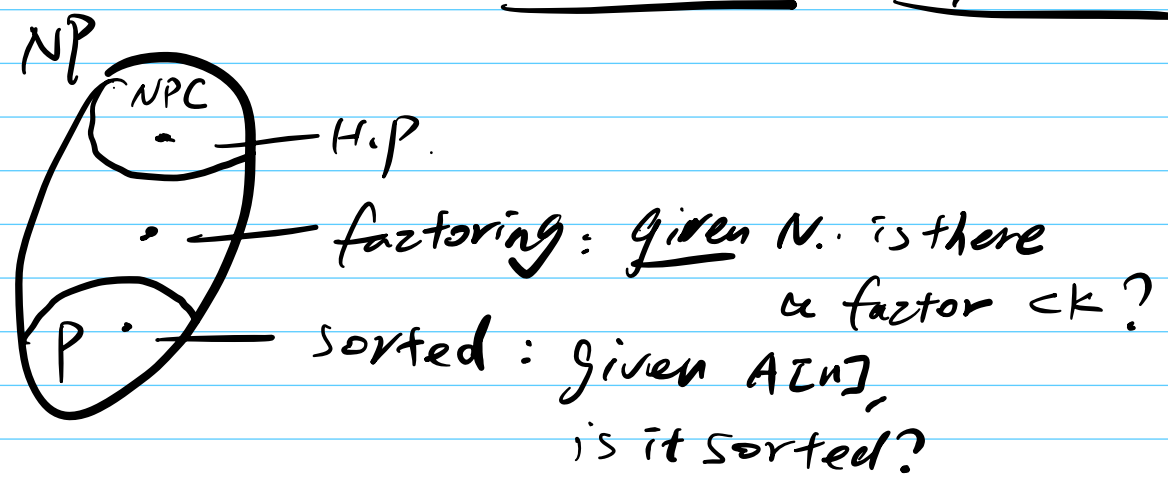 NP
NPC
H.P.
factoring: given N. is there
a factor <k?
P
sorted: given A[n],
is it sorted?